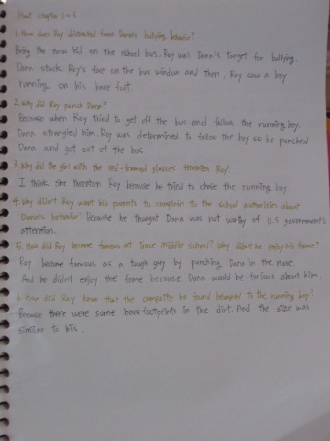 Hoot chapter 1~3
1. How does Roy distracted from Dana's bullying behavior?
Being the new kid on the school bus. Roy was Dana's target for bullying.
Dana stuck Roy's face on the bus window and then, Roy saw a boy
running on his bare foot.
2. Why did Roy punch Dana?
Because when Roy tried to get off the bus and follow the running boy.
Dana strangled him. Roy was determined to follow the boy so he punched
Dana and got out of the bus.
3. Why did the girl with the red-framed glasses threaten Roy?
I think she threaten Roy because he tried to chase the running boy.
4. Why didn't Roy want his parents to complain to the school authorities about
Dana's behavior? Because he thought Dana was not worthy of U.S government's
attention.
5. How did Roy become famous at Trace middle school? Why didn't he enjoy his fame?
Roy became famous as a tough guy by punching Dana in the nose.
And he didn't enjoy the fame because Dana would be furious about him.
6. How did Roy know that the campsite he found belonged to the running boy?
Because there were some bare footprints in the dirt. And the size was
similar to his.